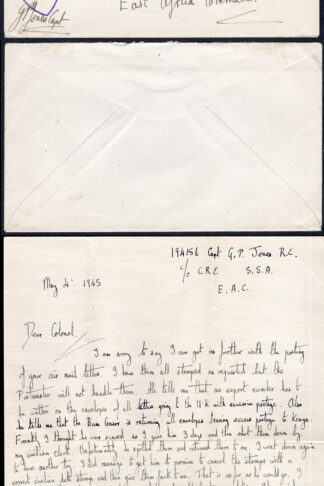 G P Jones Capt
East Africa Command
194156 Capt G. P. Jones R.C.
c/o C.R.E S.S.A.
E.A.C.
May 4th 1945
Dear Colonel
I am sorry to say I can get no further with the posting
of your air mail letters. I have them all stamped as requested but the
Postmaster will not handle them. He tells me that an export number has to
be written on the envelopes of all letters going to the U.K with excessive postage. Also
he tells me that the Base Censor is returning all envelopes bearing excess postage to Kenya.
Frankly I thought he was scared so I gave him 3 days and then shot them down by
my civilian clerk. Unfortunately he spotted them and returned them to me. I went down again
to have another try. I did manage to get him to promise to cancel the stamps with a
correct civilian date stamp and then give them back to me. That is as far as he would go. I